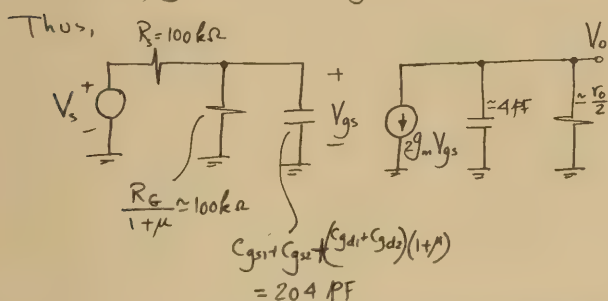 Thus,
R_s = 100kΩ
V_o
+
+
V_s
-
V_gs
-
2g_m V_gs
≃4PF
≃ r_o/2
R_G/(1+μ) ≃ 100kΩ
C_gs1 + C_gs2 + (C_gd1 + C_gd2)(1+μ)
= 204 PF